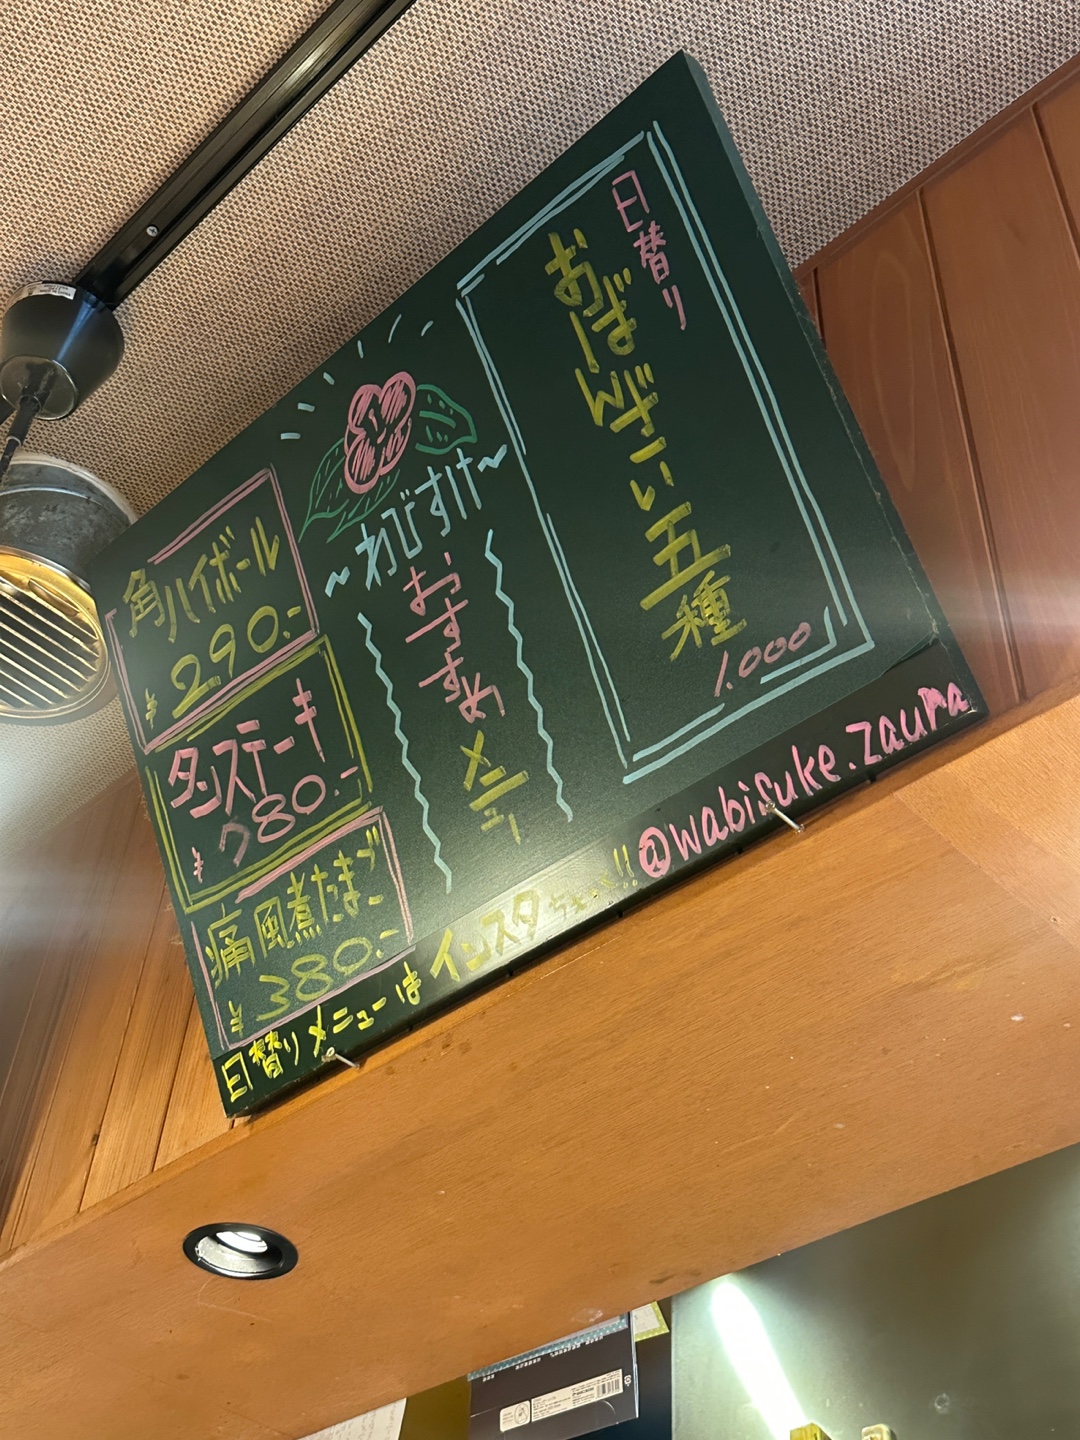 日替り
おばんざい五種
1.000
~わびすけ~
おすすめ
メニュー
角ハイボール
¥290.-
タンステーキ
¥780.-
痛風煮たまご
¥380.-
日替りメニューは インスタ ‼
@wabisuke.zaura